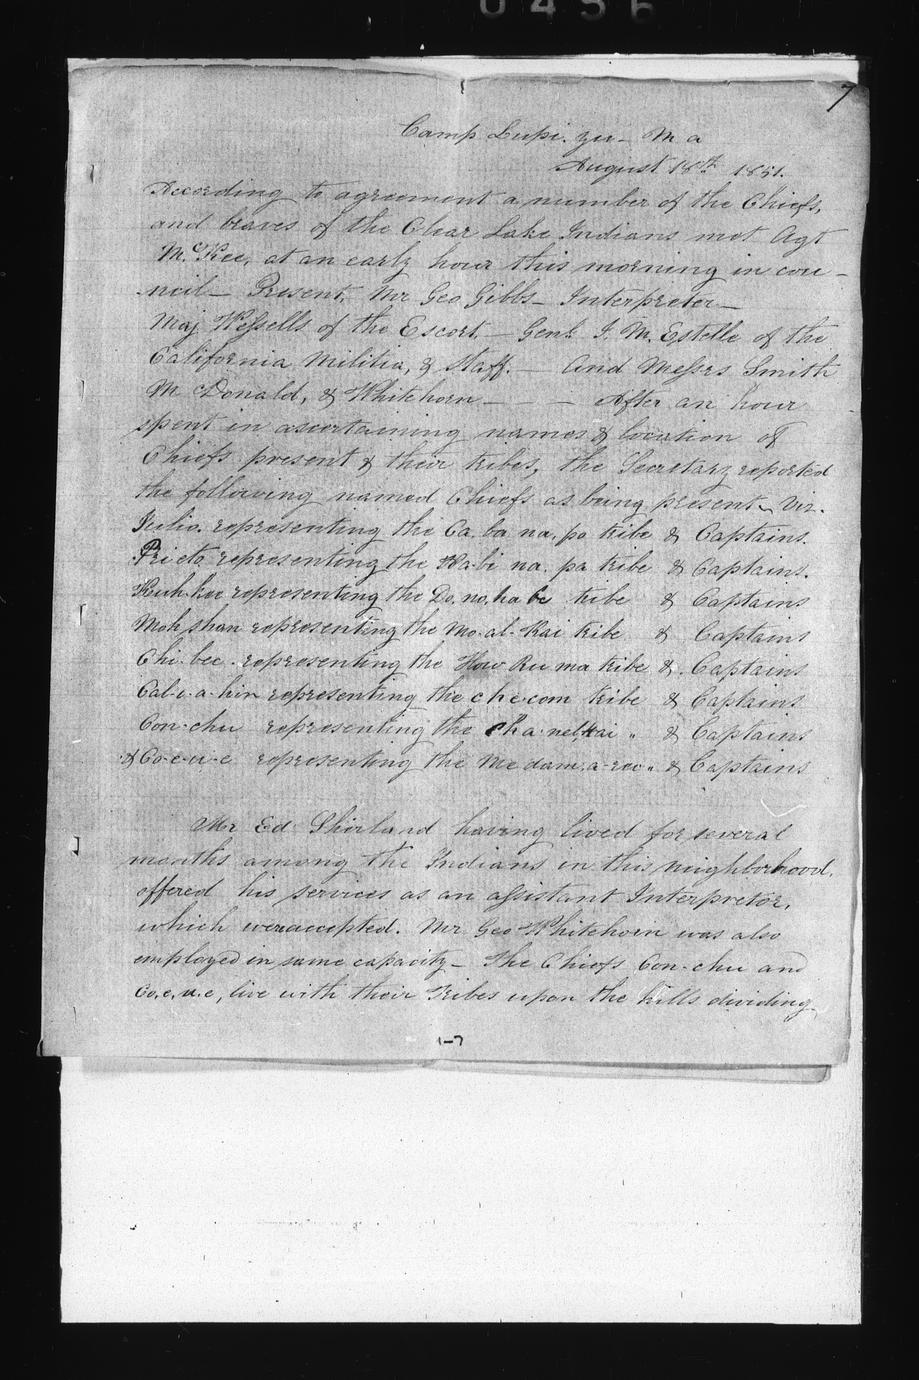 0456
7
Camp Lupi. yu - M a
August 18th 1851.
According to agreement a number of the Chiefs,
and braves of the Clear Lake Indians met Agt
McKee, at an early hour this morning in cou-
-ncil - Present, Mr Geo Gibbs - Interpreter -
Maj Wessells of the Escort, - Genl. J. M. Estelle of the
California Militia, & staff. - And Messrs Smith
McDonald, & Whitehorn - - - After an hour
spent in ascertaining names & location of
Chiefs present & their tribes, the Secretary reported
the following named Chiefs as being present, viz.
Julio. representing the Ca. ba na. po tribe & Captains.
Prieto, representing the Ha-bi na. pa tribe & Captains.
Kuh-kee representing the Da. no. ha be tribe & Captains
Moh shan representing the Mo. al- Kai tribe & Captains
Chi-bee. representing the How Ru ma tribe & Captains
Cal-i-a-hin representing the che.com tribe & Captains
Con-chu representing the Cha. nel Kai " & Captains
& Co-e-u-e representing the Me dam. a-rec " & Captains
Mr Ed Shirland having lived for several
months among the Indians in this neighborhood,
offered his services as an assistant Interpreter,
which were accepted. Mr Geo Whitehorn was also
employed in same capacity - The Chiefs Con-chu and
Co. e. u. e, live with their Tribes upon the hills dividing
1-7